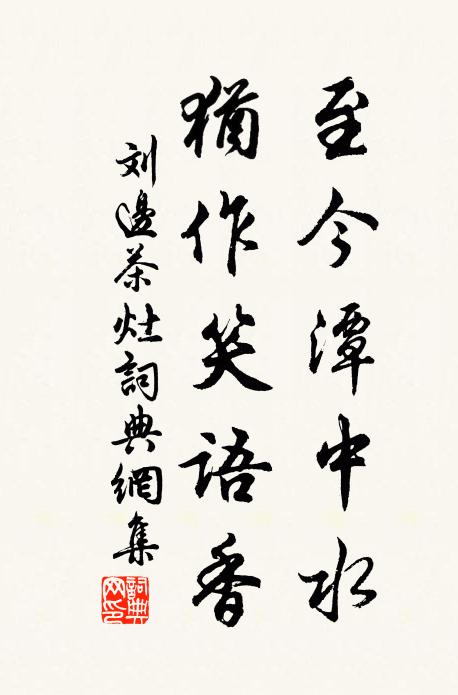 至今潭中水
猶作笑語香
刘邊茶灶詞典網集
詞典网印